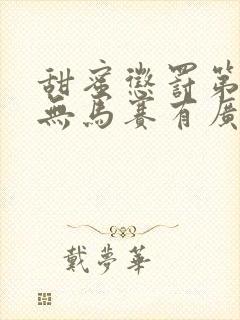 甜蜜懲罰第
無馬賽有廣
戴夢華